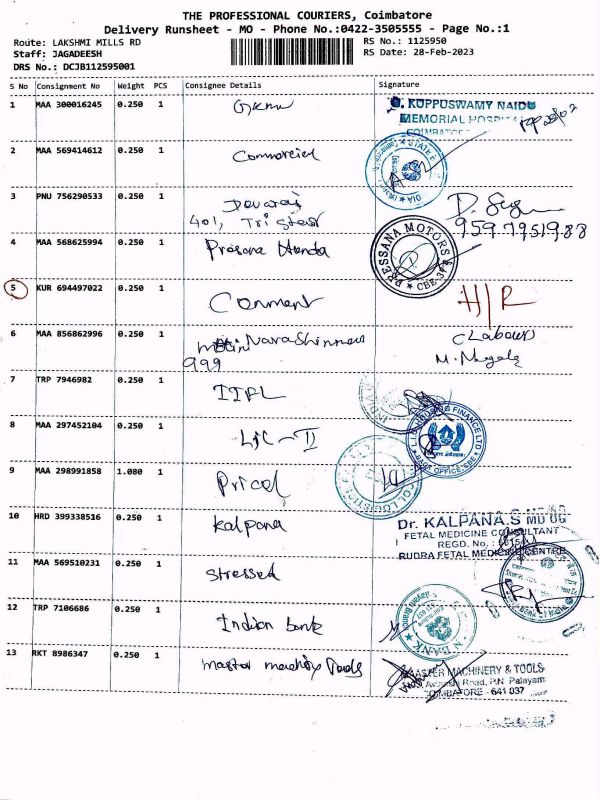 THE PROFESSIONAL COURIERS, Coimbatore
Delivery Runsheet - MO - Phone No.:0422-3505555 - Page No.:1
Route: LAKSHMI MILLS RD
RS No.: 1125950
Staff: JAGADEESH
RS Date: 28-Feb-2023
DRS No.: DCJB112595001
S No Consignment No Weight PCS Consignee Details Signature
1 MAA 300016245 0.250 1
G. KUPPUSWAMY NAIDU
MEMORIAL HOSPITAL
COIMBATORE
2 MAA 569414612 0.250 1 Commercial
3 PNU 756290533 0.250 1 Devaraj
401, Tri Star
9597951988
4 MAA 568625994 0.250 1 Prasana Honda
PRESSANA MOTORS
CBE-37
5 KUR 694497022 0.250 1 Conment H/R
6 MAA 856862996 0.250 1 Narashimman
999
C Labours
7 TRP 7946982 0.250 1 IIFL
8 MAA 297452104 0.250 1 LIC - II
L.I.C HOUSING FINANCE LTD
9 MAA 298991858 1.080 1 Pricol
10 HRD 399338516 0.250 1 Kalpana
Dr. KALPANA.S MD OG
FETAL MEDICINE CONSULTANT
REGD. No. :
RUDRA FETAL MEDICINE CENTRE
11 MAA 569510231 0.250 1 Stressed
12 TRP 7106686 0.250 1 Indian bank
13 RKT 8986347 0.250 1 master machinery Tools
MASTER MACHINERY & TOOLS
Road, P.N. Palayam
COIMBATORE - 641 037